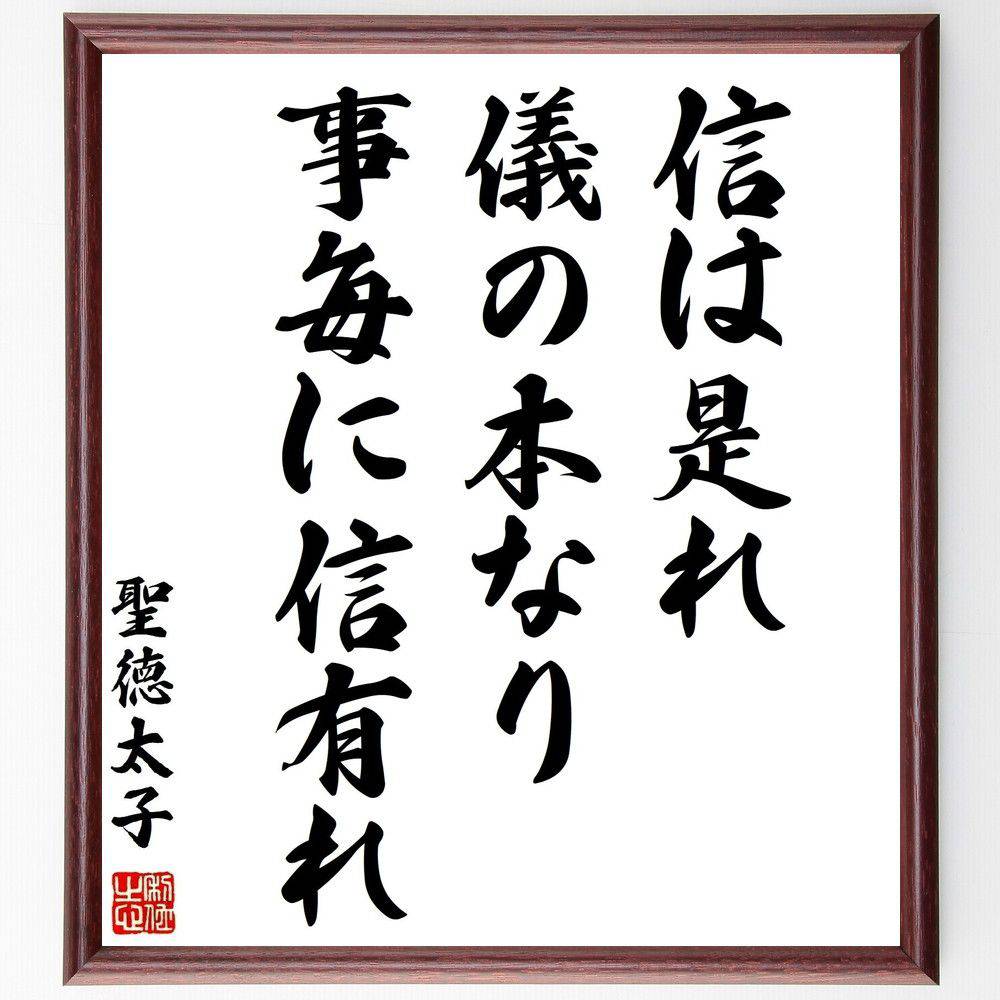 信は是れ
儀の本なり
事毎に信有れ
聖徳太子